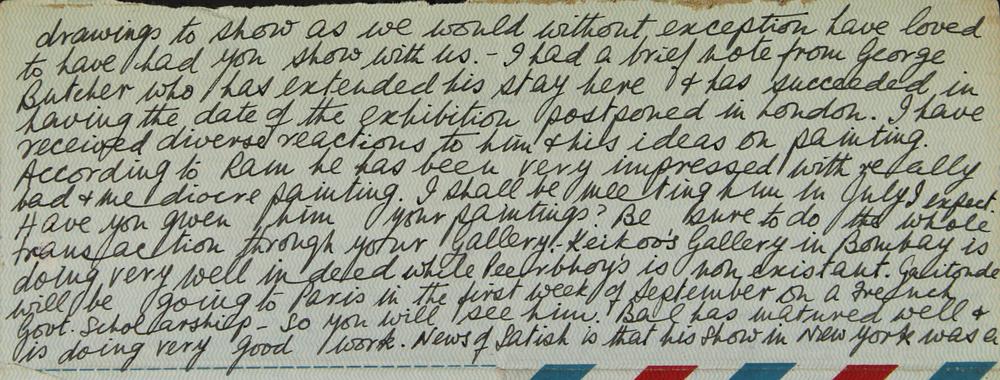 drawings to show as we would without, exception have loved
to have had you show with us. - I had a brief note from George
Butcher who has extended his stay here & has succeeded in
having the date of the exhibition postponed in London. I have
received diverse reactions to him & his ideas on painting.
According to Ram he has been very impressed with really
bad & mediocre painting. I shall be meeting him in July I expect.
Have you given him your paintings? Be sure to do the whole
transaction through your Gallery. Keikoo's Gallery in Bombay is
doing very well indeed while Peerbhoy's is non existant. Gaitonde
will be going to Paris in the first week of September on a French
Govt. Scholarship - so you will see him. Bal has matured well &
is doing very good work. News of Satish is that his show in New York was a